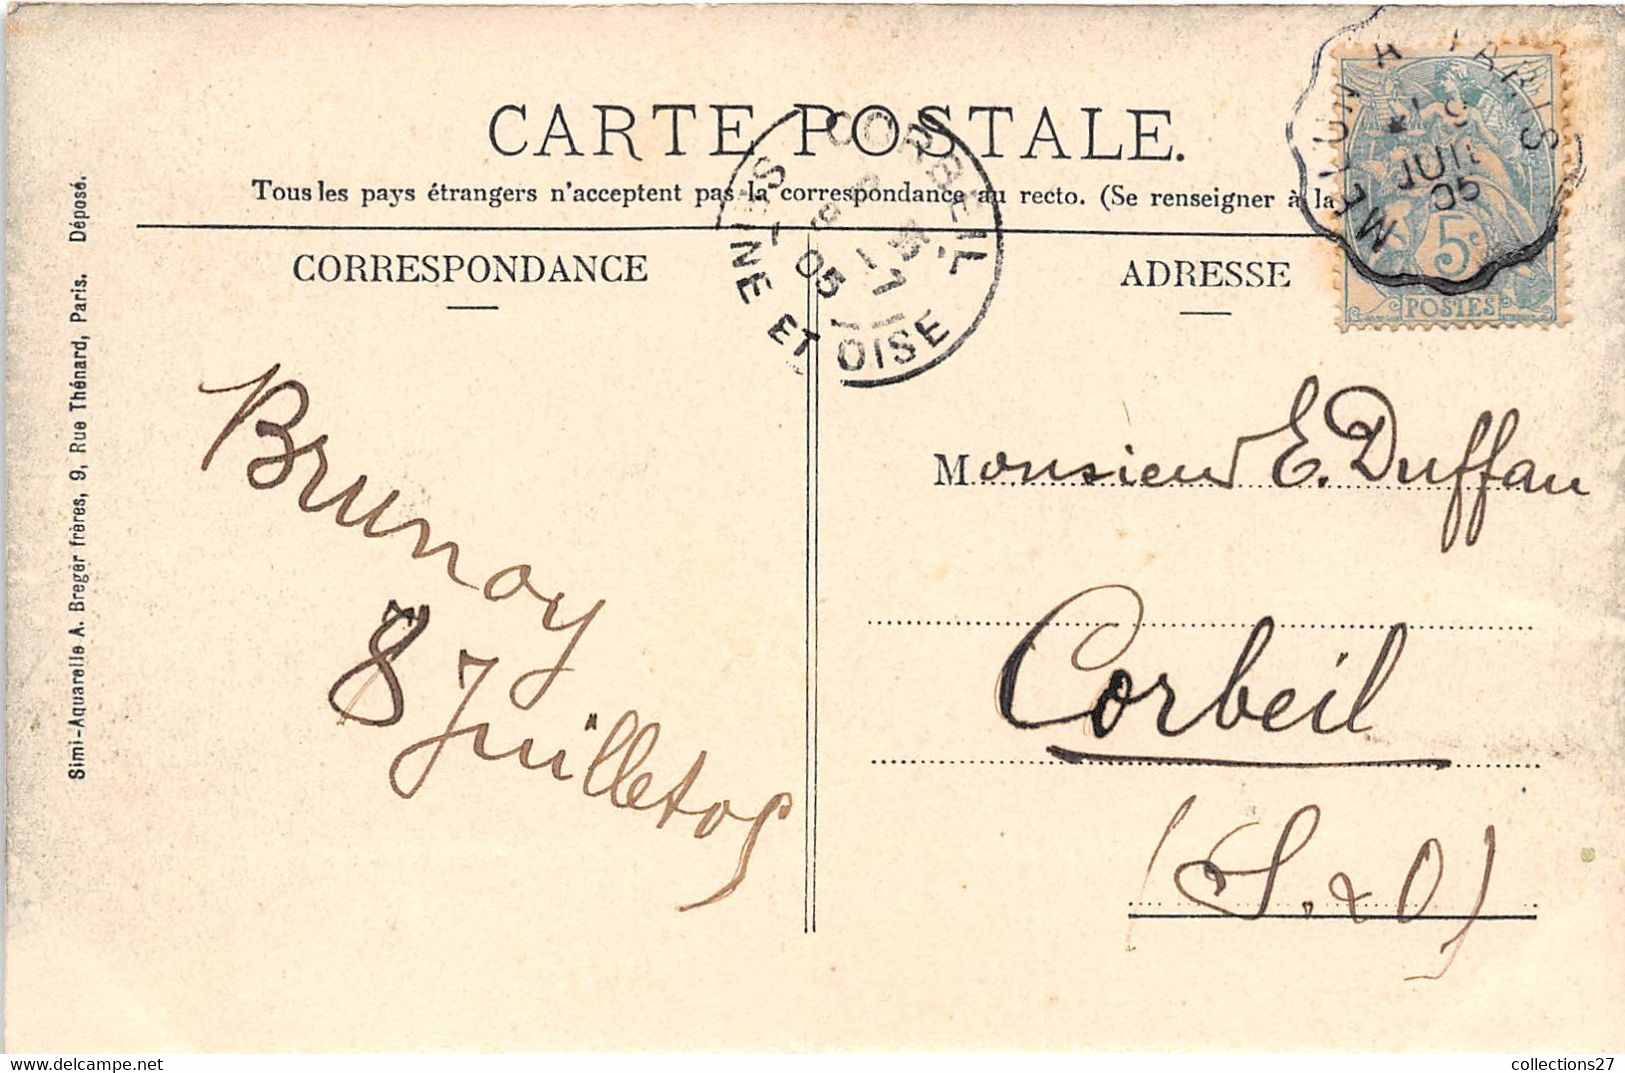 CARTE POSTALE.
Tous les pays étrangers n'acceptent pas la correspondance au recto. (Se renseigner à la
CORRESPONDANCE
ADRESSE
MELUN A PARIS
9
JUIL
05
5c
POSTES
CORBEIL
05
SEINE ET OISE
Brunoy
8 Juillet 05
Monsieur E. Duffau
Corbeil
(S. & O)
Simi-Aquarelle A. Breger frères, 9, Rue Thénard, Paris. Déposé.
collections27